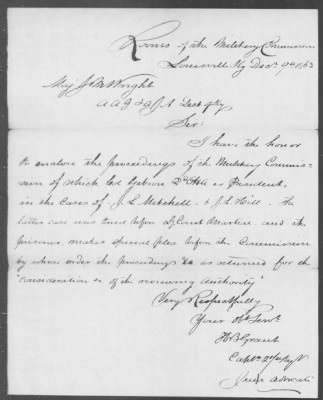 Rooms of the Military Commission
Louisville Ky Decr 9th 1863
Maj J. M. Wright
A A G & J A Dist of Ky
Sir.
I have the honor
to enclose the proceedings of the Military Commis-
sion of which Col is President,
in the Cases of J. L. Mitchell & J. L. Hill. The
latter case was tried before a Court Martial, and the
prisoner, makes special plea before the Commission
by whose order the proceedings is returned for the
"consideration of the reviewing authority"
Very Respectfully
Your Obt Servt
H B Grant
Capt 27 Ky V
Judge Advocate